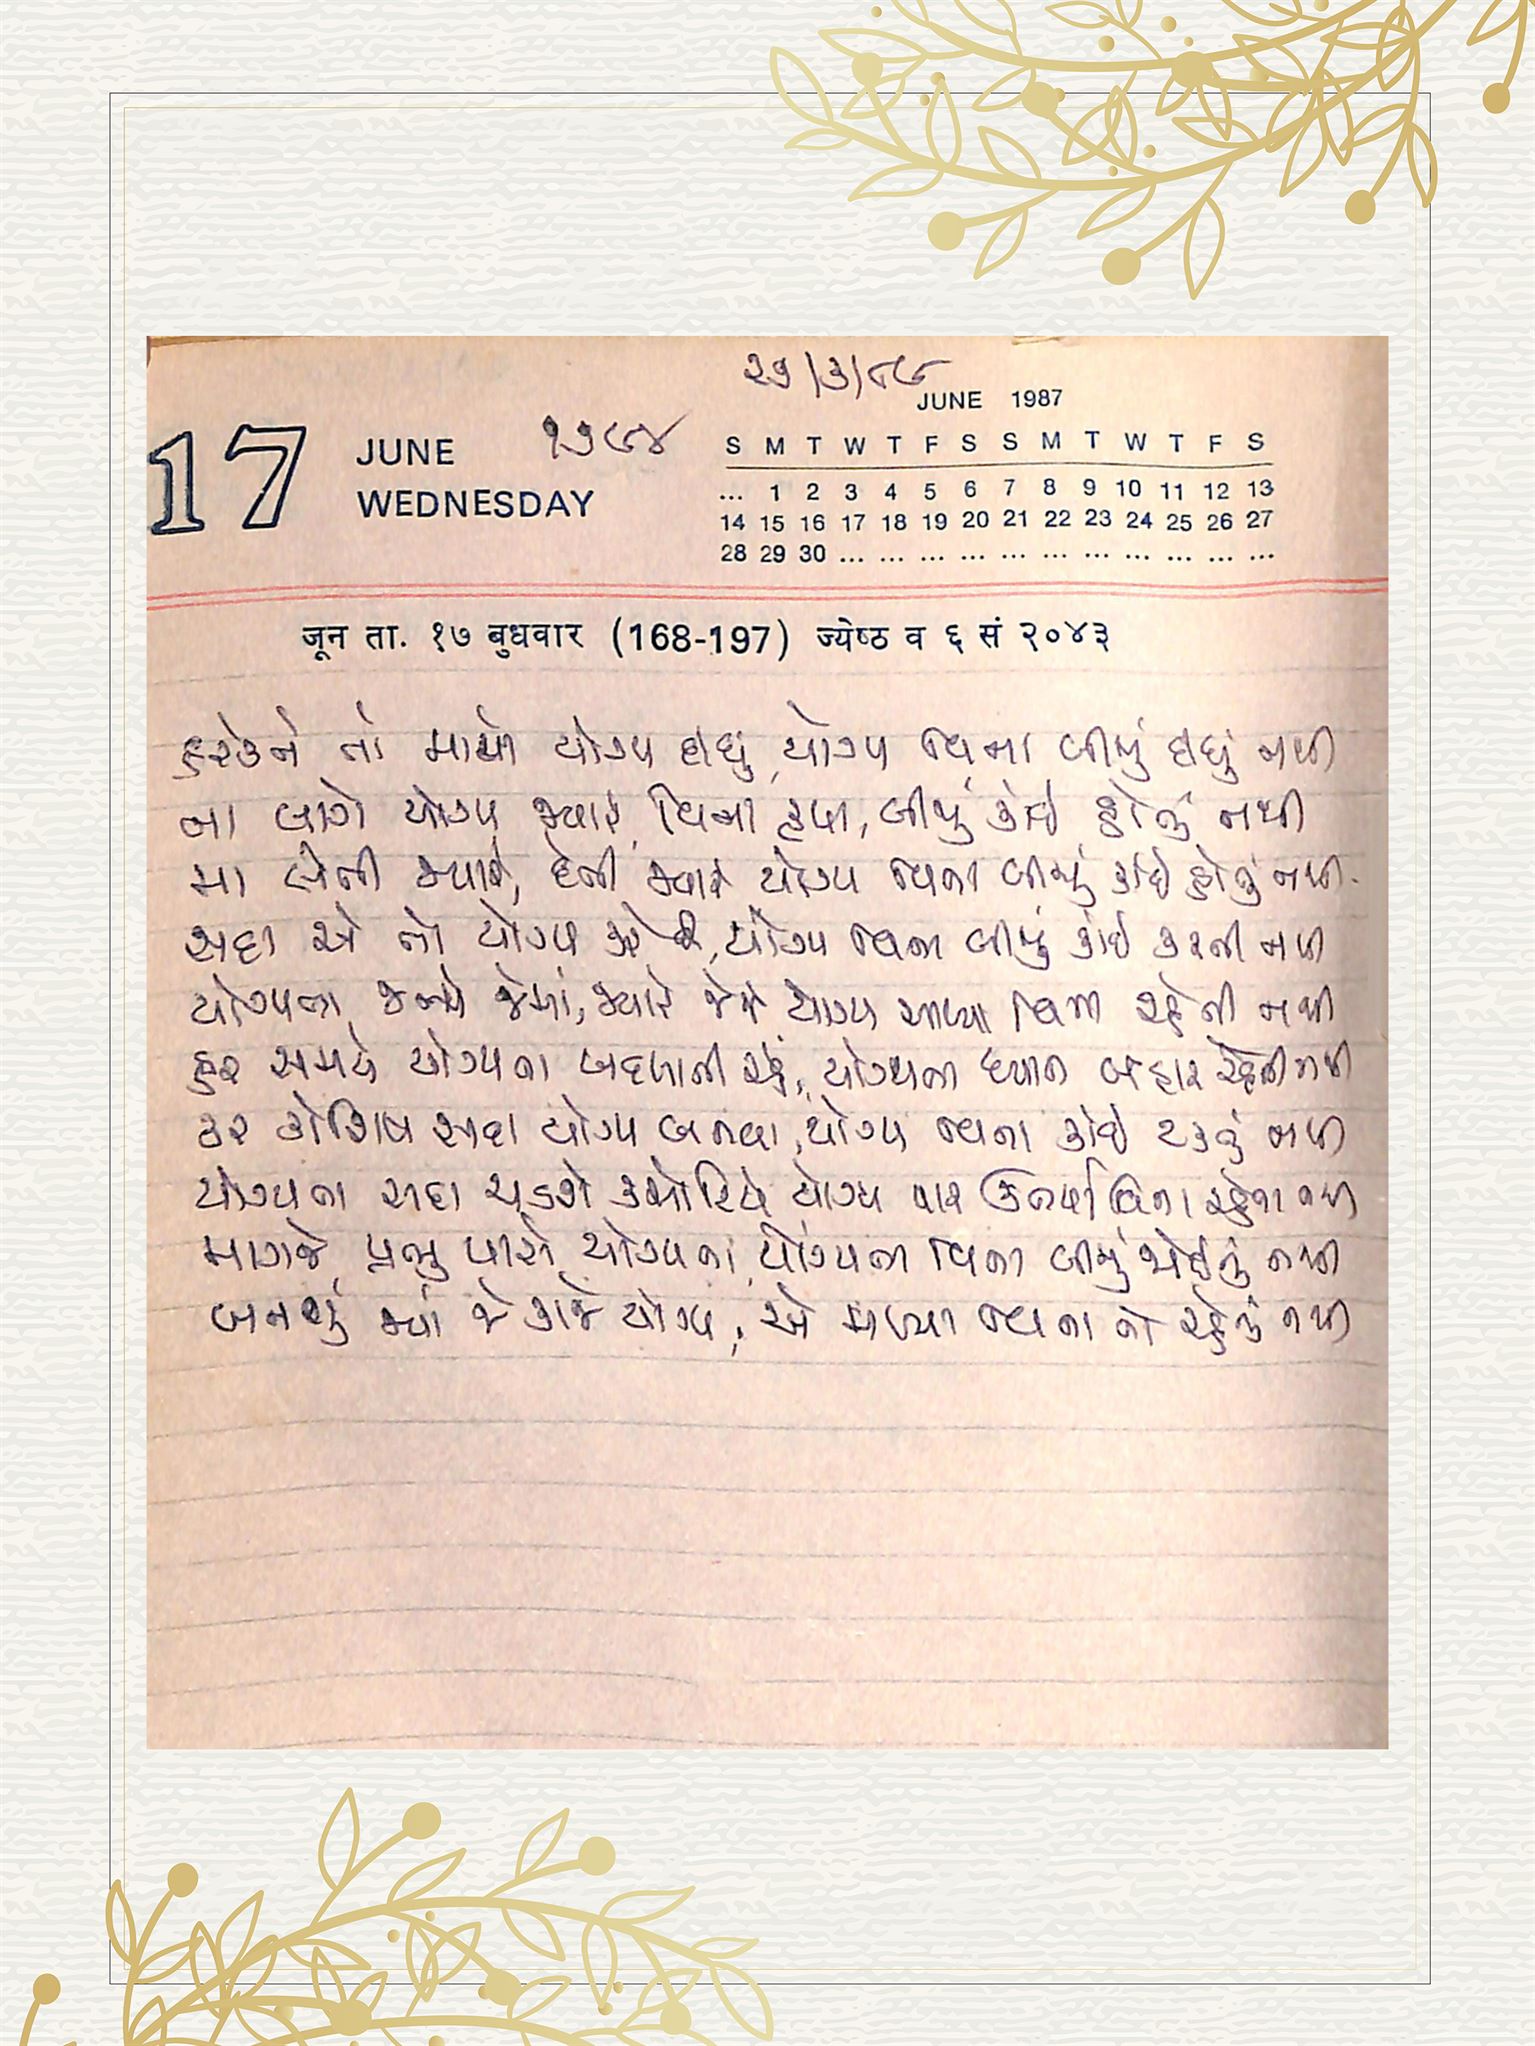 ૨૭/૩/૮૯
JUNE 1987
17 JUNE ૧૭૮૪
WEDNESDAY
S M T W T F S S M T W T F S
... 1 2 3 4 5 6 7 8 9 10 11 12 13
14 15 16 17 18 19 20 21 22 23 24 25 26 27
28 29 30 ... ... ... ... ... ... ... ... ... ... ...
जून ता. १७ बुधवार (168-197) ज्येष्ठ व ६ सं २०४३
હરેકને તો માથે યોગ્ય વિના બીજું નથી
ના લાગે યોગ્ય જ્યારે, વિના બીજું કોઈ હોતું નથી
મા લેતી જ્યારે, દેતી જ્યારે યોગ્ય વિના બીજું કાંઈ હોતું નથી.
સદા એ તો યોગ્ય કરે, યોગ્ય વિના બીજું કાંઈ કરતી નથી
યોગ્યતા જેમાં, જ્યારે જેને યોગ્ય આપ્યા વિના રહેતી નથી
હર સમયે યોગ્યતા બદલાતી રહે, યોગ્યતા ધ્યાન બહાર રહેતી નથી
કર કોશિષ સદા યોગ્ય બનવા, યોગ્ય વિના કોઈ ટકતું નથી
યોગ્યતા સદા ચડશે કસોટીએ, યોગ્ય પાર ઊતર્યા વિના રહેતા નથી
માગજે પ્રભુ પાસે યોગ્યતા, યોગ્યતા વિના બીજું જોઈતું નથી
બનશું જ્યાં જે કાજે યોગ્ય, એ મળ્યા વિના તો રહેતું નથી